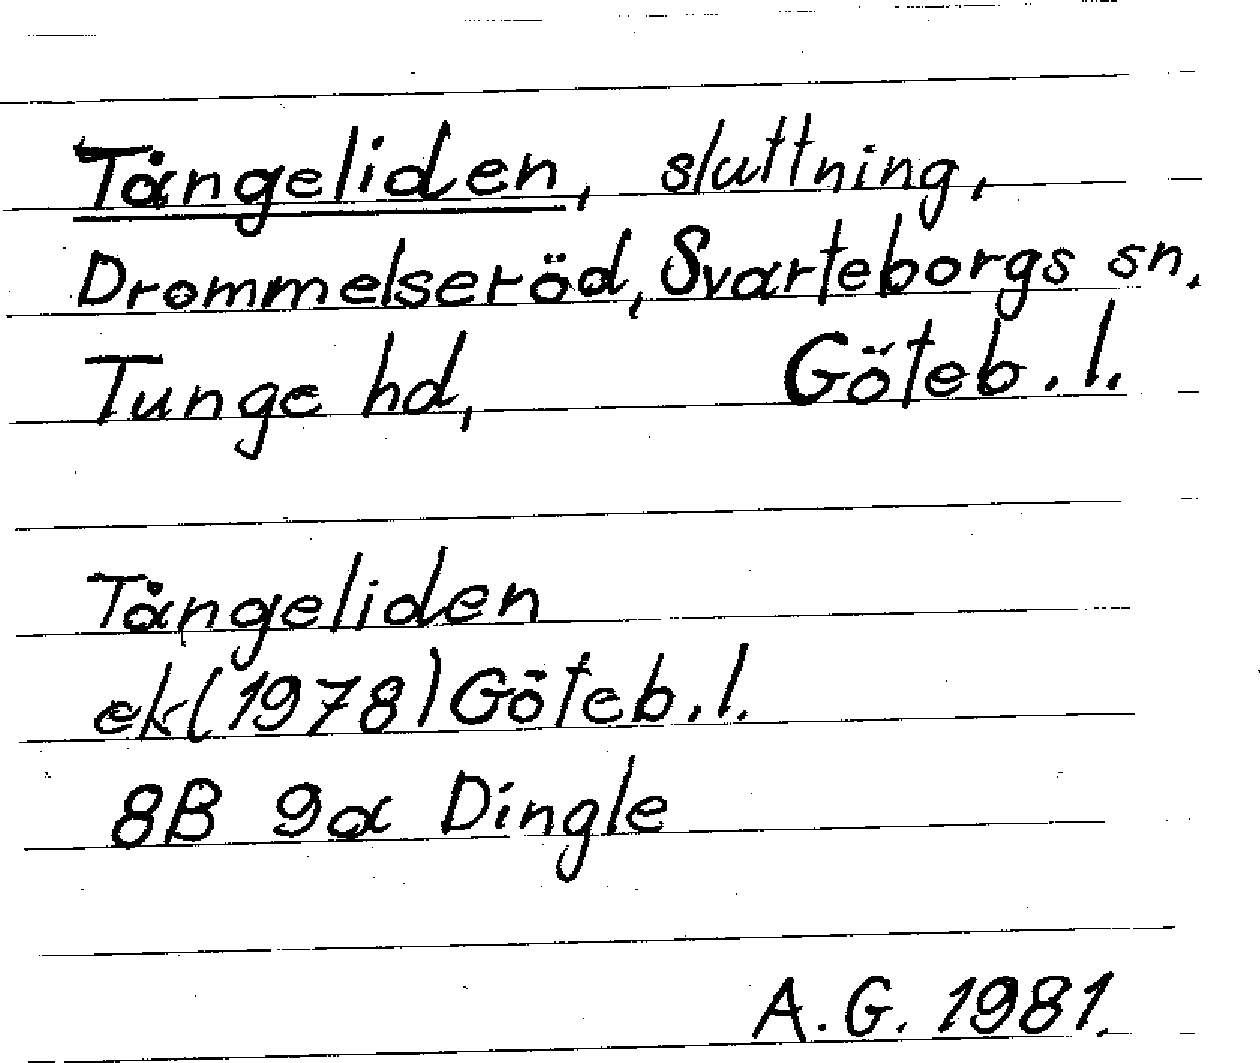 Tångeliden, sluttning,
Drommelseröd, Svarteborgs sn.
Tunge hd, Göteb. l.
Tångeliden
ek (1978) Göteb. l.
8B 9a Dingle
A.G. 1981.